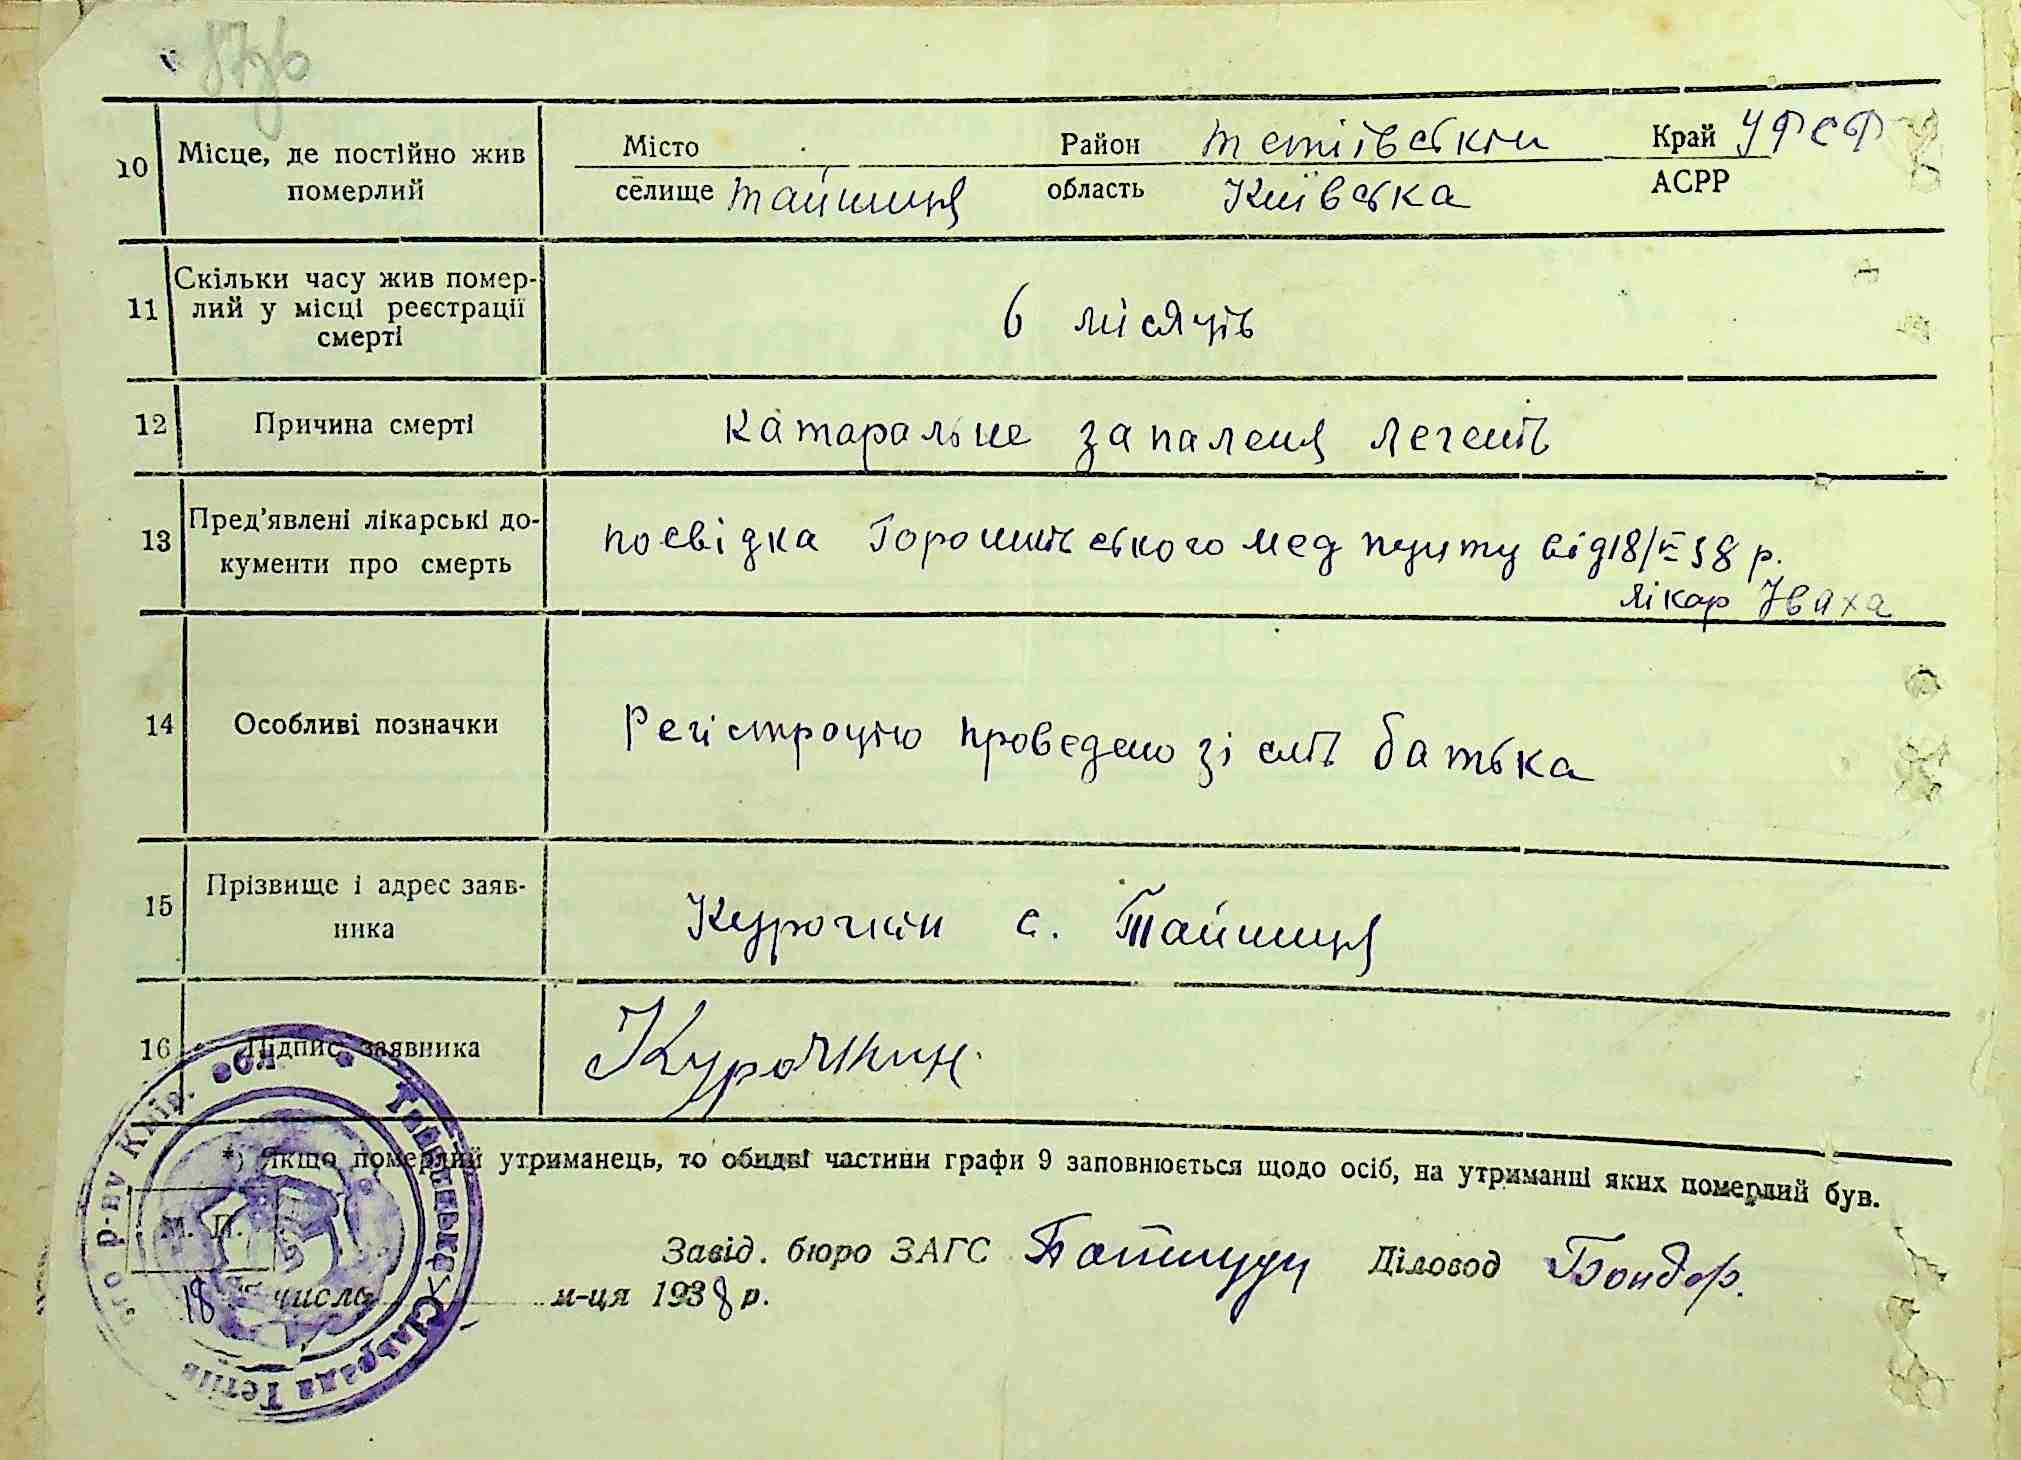 87зв
10 Місце, де постійно жив
померлий
Місто Район тетіївський Край УРСР
селище тайниця область Київська АСРР
11 Скільки часу жив помер-
лий у місці реєстрації
смерті
6 місяців
12 Причина смерті
катаральне запаленя легенів
13 Пред'явлені лікарські до-
кументи про смерть
посвідка Горошківського мед пункту від 18/VI 38 р.
лікар Іваха
14 Особливі позначки
Регістрацію проведено зі слів батька
15 Прізвище і адрес заяв-
ника
Курочкін с. Тайниця
16 Підпис заявника
Курочкин
*) Якщо померлий утриманець, то обидві частини графи 9 заповнюється щодо осіб, на утриманні яких померлий був.
М. П.
Завід. бюро ЗАГС Діловод Бондар.
18 числа м-ця 1938 р.
Тайницька Сільрада Тетіїв
ого р-ну Київ. обл